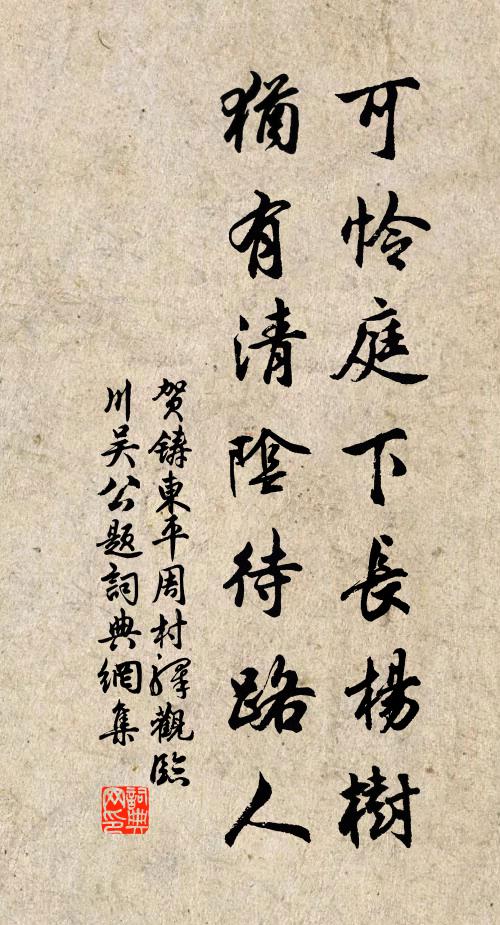 可憐庭下長楊樹
猶有清陰待路人
賀鑄東平周村驛觀臨
川吴公題詞典網集
詞典网印